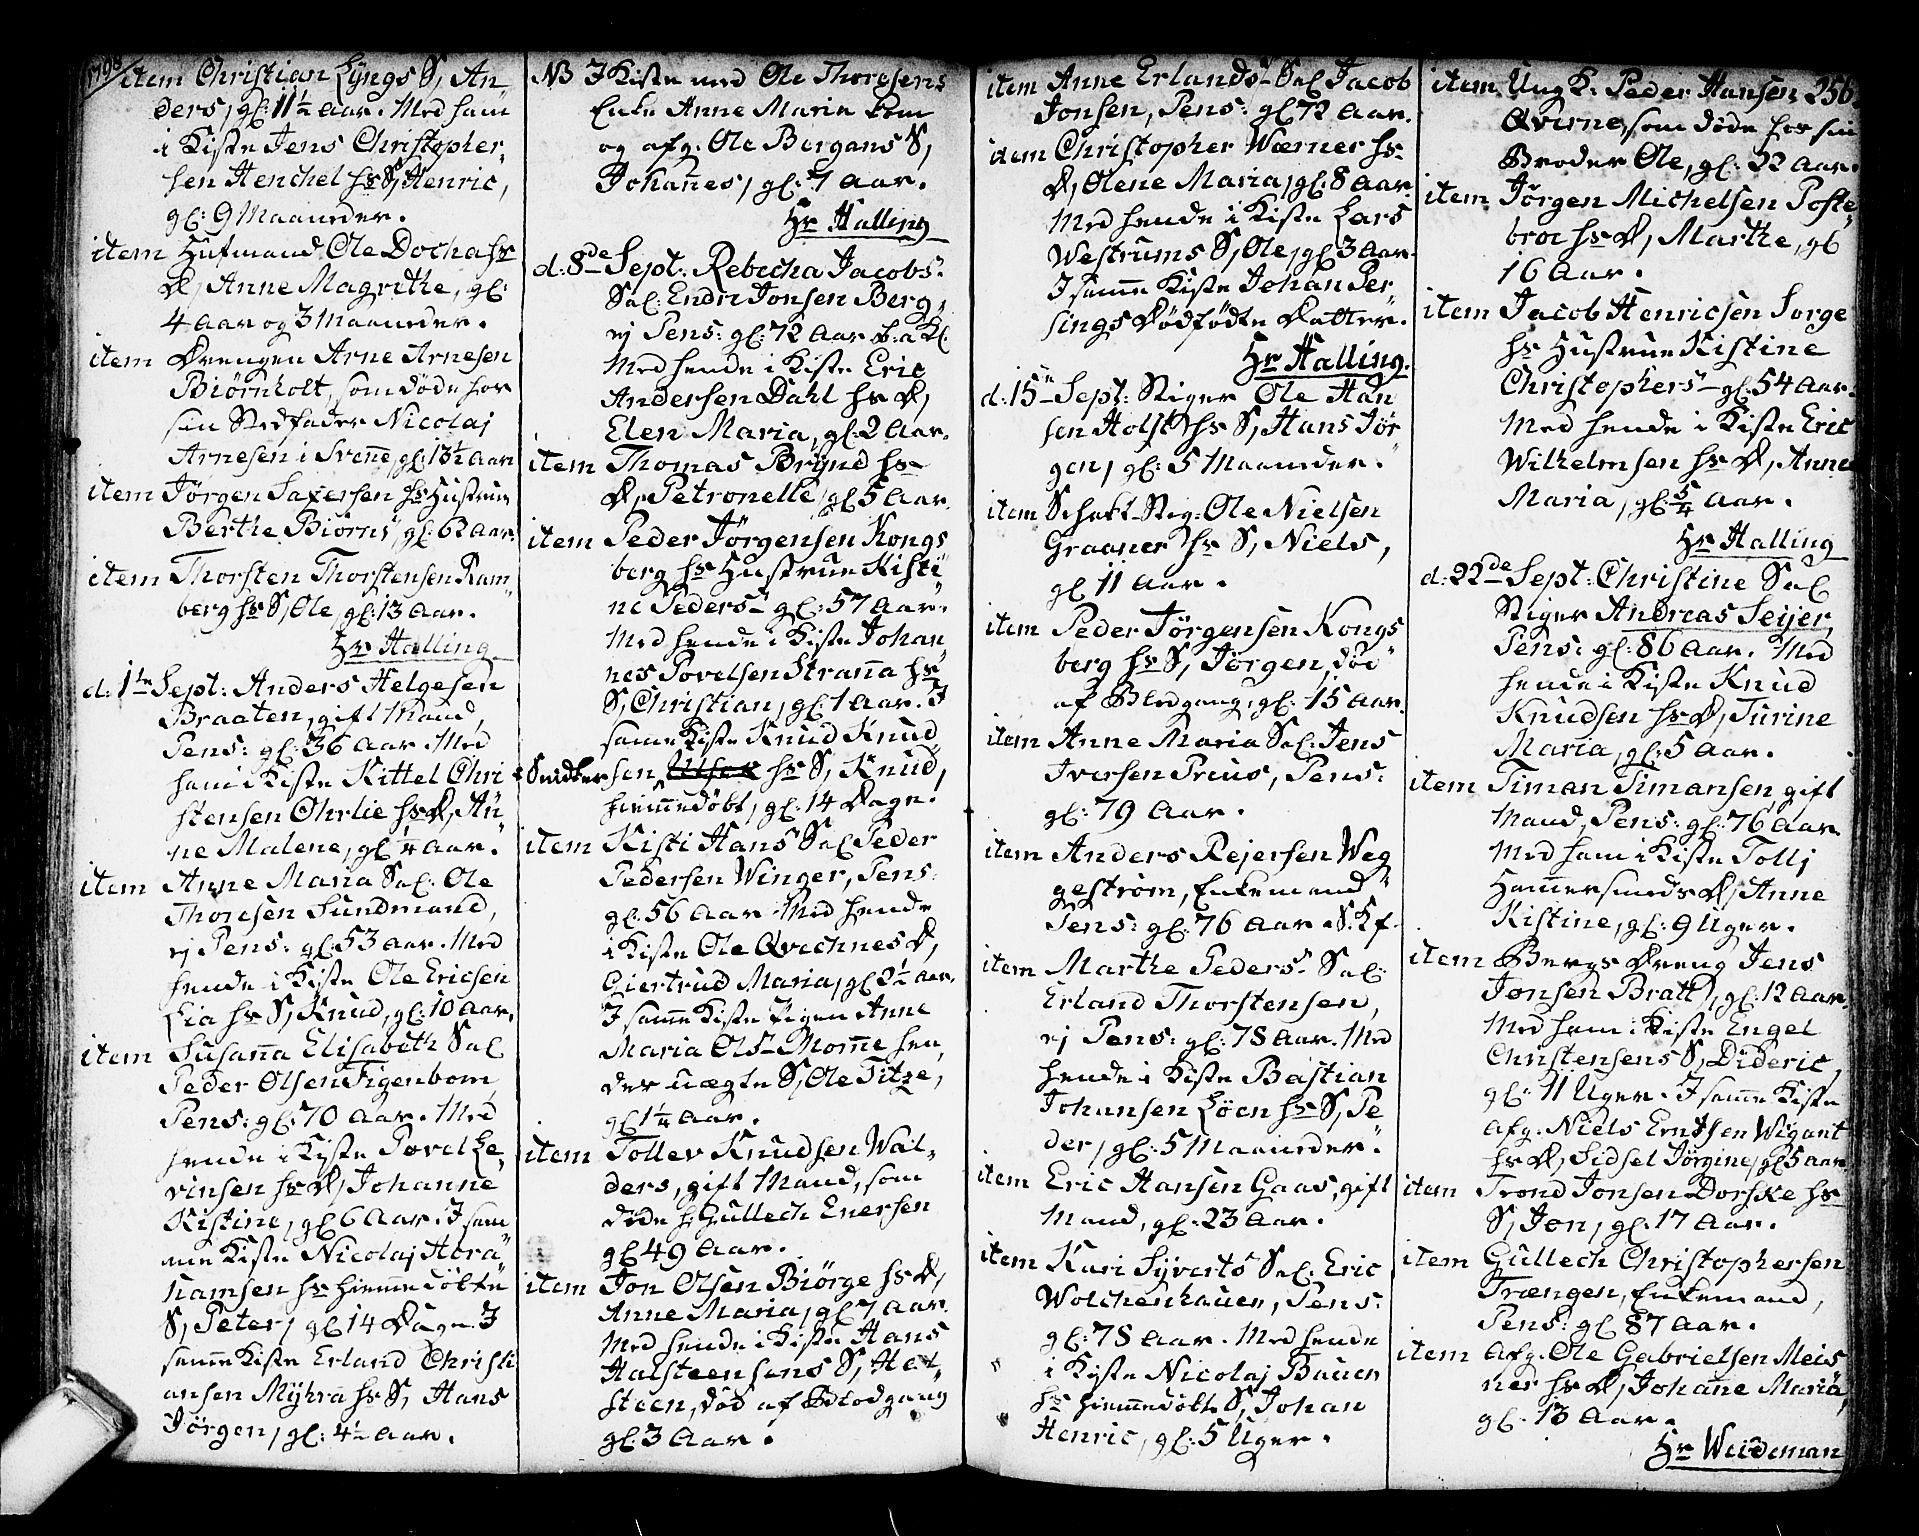 item Christian Lyngs S, An-
ders, gl: 11 1/2 Aar. Med ham
i Kiste Jens Christopher-
sen Henchel hs S, Henric,
gl: 9 Maaneder.
item Husmand Ole Dochas hs
D, Anne Magrethe, gl:
4 Aar og 3 Maaneder.
item Drengen Arne Arnesen
Biørnholt, som døde hos
sin Stedfader Nicolaj
Arnesen i Svene, gl: 13 1/2 Aar
item Jørgen Saxersen hs Hustrue
Berthe Biørns, gl: 62 Aar.
item Thorsten Thorstensen Ram-
berg hs S, Ole, gl: 13 Aar.
Hr Halling
d: 1te Sept: Anders Helgesen
Braaten, gift Mand,
Pens: gl: 36 Aar. Med
ham i Kiste Kittel Chri-
stensen Ohrlie hs D, An-
ne Malene, gl 1/4 Aar.
item Anne Maria Sal: Ole
Thoresen Sundmand,
ej Pens: gl: 53 Aar. Med
hende i Kiste Ole Ericsen
Lia hs S, Knud, gl: 10 Aar.
item Susanna Elisabeth Sal
Peder Olsen Figenbom,
Pens: gl: 70 Aar. Med
hende i Kiste Povel Le-
vinsen hs D, Johanne
Kistine, gl 6 Aar. I sam-
me Kiste Nicolaj Abra-
hamsen hs hiemmedøbte
S, Peter, gl 14 Dage. I
samme Kiste Erland Christi
ansen Myhra hs S, Hans
Jørgen, gl: 4 1/2 Aar.
NB I Kiste med Ole Thoresens
Enke Anne Maria kom
og afg. Ole Bergans S,
Johannes, gl: 7 Aar.
Hr Halling
d: 8de Sept: Rebecha Jacobs-
Sal: Endre Jonsen Berg,
ej Pens: gl: 72 Aar
Med hende i Kiste Eric
Andersen Dahl hs D,
Elen Maria, gl: 2 Aar.
item Thomas Brynd hs
D, Petronelle, gl 5 Aar.
item Peder Jørgensen Kongs
berg hs Hustrue Kisti
ne Peders- gl: 57 Aar.
Med hende i Kiste Johan
nes Povelsen Stranna hs
S, Christian, gl: 1 Aar. I
samme Kiste Knud Knud
Snidker sen, hs S, Knud,
hiemmedøbt, gl: 14 Dage.
item Kisti Hans Sal Peder
Pedersen Winger, Pens:
gl: 56 Aar Med hende
i Kiste Ole Qvechnes D,
Giertrud Maria, gl 2 1/2 Aar.
I samme Kiste Pigen Anne
Maria Ols- Momme hen
des uægte S, Ole Titze,
gl 1 1/4 Aar.
item Tollev Knudsen Wal-
ders, gift Mand, som
døde h: Gullech Enersen
gl 49 Aar.
item Jon Olsen Biørge hs D,
Anne Maria, gl 7 Aar.
Med hende i Kiste Hans
Halsteensens S, Hal-
steen, død af Blodgang
gl: 3 Aar.
item Anne Erlands- Sal Jacob
Jonsen, Pens: gl 72 Aar.
item Christopher Wærner hs
D, Olene Maria, gl: 8 Aar
Med hende i Kiste Lars
Westrums S, Ole, gl 3 Aar.
I samme Kiste Johan Per
sings Dødfødte Datter.
Hr Halling.
d: 15de Sept: Stiger Ole Han
sen Holst hs S, Hans Jør
gen, gl: 5 Maaneder.
item Schakt-Stig: Ole Nielsen
Graaner hs S, Niels,
gl 11 Aar.
item Peder Jørgensen Kongs
berg hs S, Jørgen, død
af Blodgang, gl: 15 Aar.
item Anne Maria Sal: Jens
Iversen Preus, Pens:
gl: 79 Aar.
item Anders Rejersen Weg
gestrøm, Enkemand
Pens: gl: 76 Aar. S. Kf.
item Marthe Peders- Sal:
Erland Thorstensen,
ej Pens: gl: 78 Aar. Med
hende i Kiste Bastian
Johansen Løen hs S, Pe
der, gl: 5 Maaneder.
item Eric Hansen Gaas, gift
Mand, gl: 23 Aar.
item Kari Syverts Sal: Eric
Wolchenhauer, Pens:
gl: 78 Aar. Med hende
i Kiste Nicolaj Bauer
hs hiemmedøbte S, Johan
Henric, gl: 5 Uger.
item Ung K. Peder Hansen 256.
Qverne, som døde hos sin
Broder Ole, gl: 22 Aar.
item Jørgen Michelsen Poste-
broe hs D, Marthe, gl
16 Aar.
item Jacob Henricsen Sorge
hs Hustrue Kistine
Christophers- gl: 54 Aar.
Med hende i Kiste Eric
Wilhelmsen hs D, Anne
Maria, gl: 5/4 Aar.
Hr Halling
d: 22de Sept: Christine Sal
Stiger Andreas Seijer,
Pens: gl: 86 Aar. Med
hende i Kiste Knud
Knudsen hs D, Turine
Maria, gl: 5 Aar.
item Timan Timansen gift
Mand, Pens: gl: 76 Aar
Med ham i Kiste Tollj
Hammersmeds D, Anne
Kistine, gl: 9 Uger.
item Bergs Dreng Jens
Jonsen Bratt, gl: 12 Aar.
Med ham i Kiste Engel
Christensens S, Dideric,
gl: 11 Uger. I samme Kiste
afg. Niels Erndsen Wigant
hs D, Sidsel Jørgine, gl 5 Aar
item Trond Jonsen Dorske hs
S, Jon, gl: 17 Aar.
item Gullech Christophersen
Trængen, Enkemand,
Pens: gl 87 Aar.
item Afg. Ole Gabrielsen Meis
ner hs D, Johanne Maria,
gl. 13 Aar.
Hr Weideman